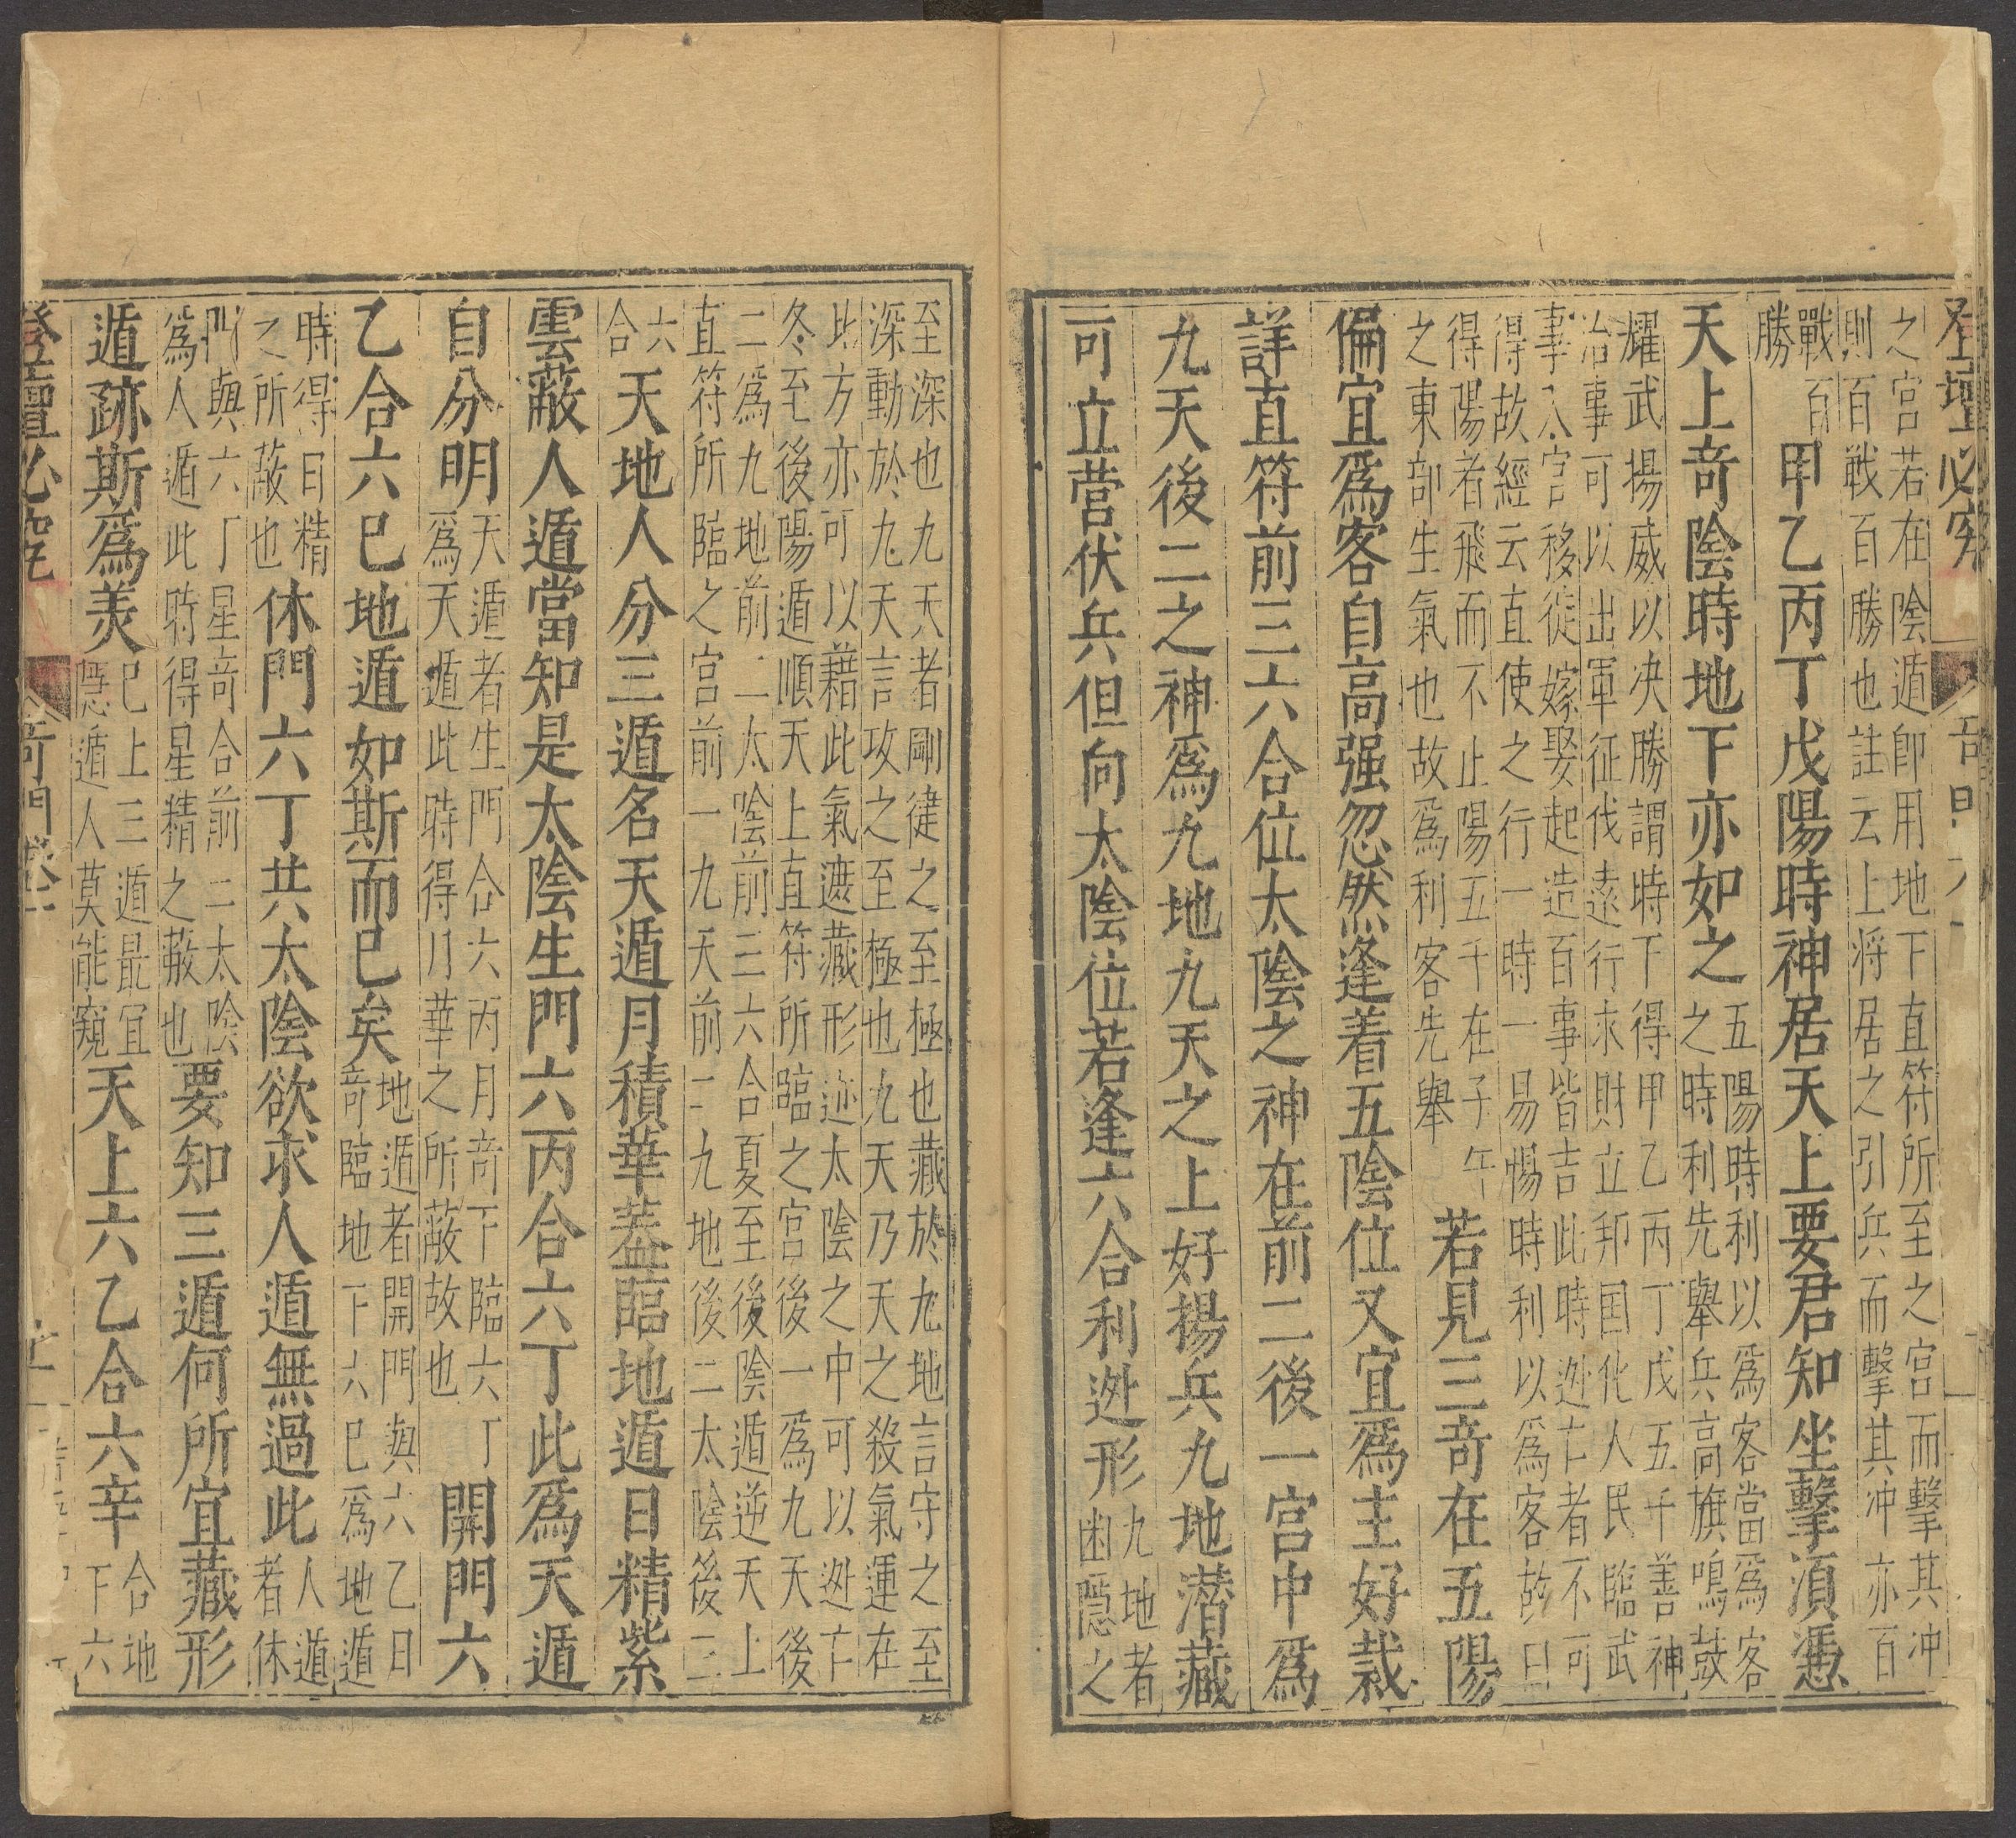 登壇必究
之宮若在陰遁卽用地下直符所至之宮而擊其冲
則百戰百勝也註云上将居之引兵而擊其冲亦百
戰百
勝
甲乙丙丁戊陽時神居天上要君知坐擊湏憑
天上奇陰時地下亦如之
五陽時利以爲客當爲客
之時利先舉兵高旗鳴鼓
耀武揚威以决勝謂時下得甲乙丙丁戊五千善神
治事可以出軍征伐遠行求財立邦国化人民臨武
事入官移徙嫁娶起造百事皆吉此時迯亡者不可
得故經云直使之行一時一易惕時利以爲客故曰
得陽者飛而不止陽五千在子午
之東部生氣也故爲利客先舉
若見三奇在五陽
偏宜爲客自高强忽然逢着五陰位又宜爲主好裁
詳直符前三六合位太陰之神在前二後一宮中爲
九天後二之神爲九地九天之上好揚兵九地潜藏
可立营伏兵但向太陰位若逢六合利迯形
九地者
困隱之
至深也九天者剛健之至極也藏於九地言守之至
深動於九天言攻之至極也九天乃天之殺氣運在
此方亦可以藉此氣遮藏形迹太陰之中可以迯亡
冬至後陽遁順天上直符所臨之宮後一爲九天後
二爲九地前二太陰前三六合夏至後陰遁逆天上
直符所臨之宮前一九天前二九地後二太陰後三
六
合
天地人分三遁名天遁月積華蓋臨地遁日精紫
雲蔽人遁當知是太陰生門六丙合六丁此爲天遁
自分明
天遁者生門合六丙月奇下臨六丁
爲天遁此時得月華之所蔽故也
開門六
乙合六巳地遁如斯而巳矣
地遁者開門與六乙日
奇臨地下六巳爲地遁
時得日精
之所蔽也
休門六丁共太陰欲求人遁無過此
人遁
者休
門與六丁星奇合前二太陰
爲人遁此時得星精之蔽也
要知三遁何所宜藏形
遁跡斯爲美
巳上三遁最宜
隱遁人莫能窺
天上六乙合六辛
合地
下六
登壇必究
奇門卷